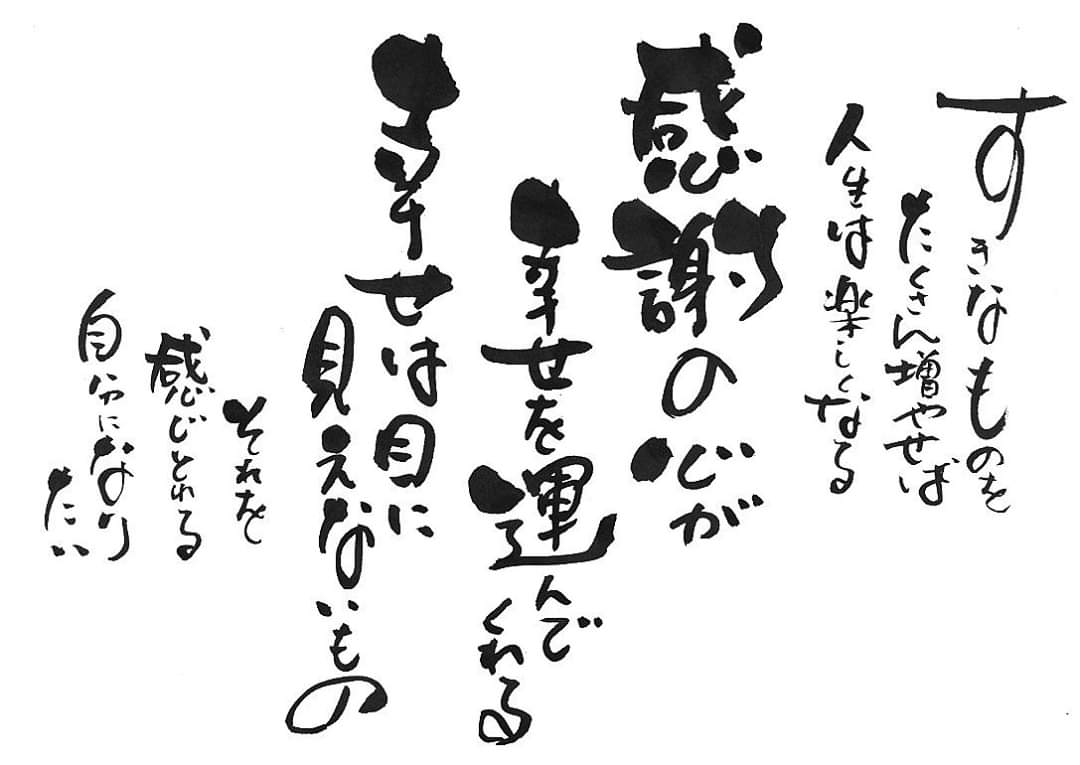 すきなものを
たくさん増やせば
人生は楽しくなる
感謝の心が
幸せを運んで
くれる
幸せは目に
見えないもの
それを
感じとれる
自分になり
たい